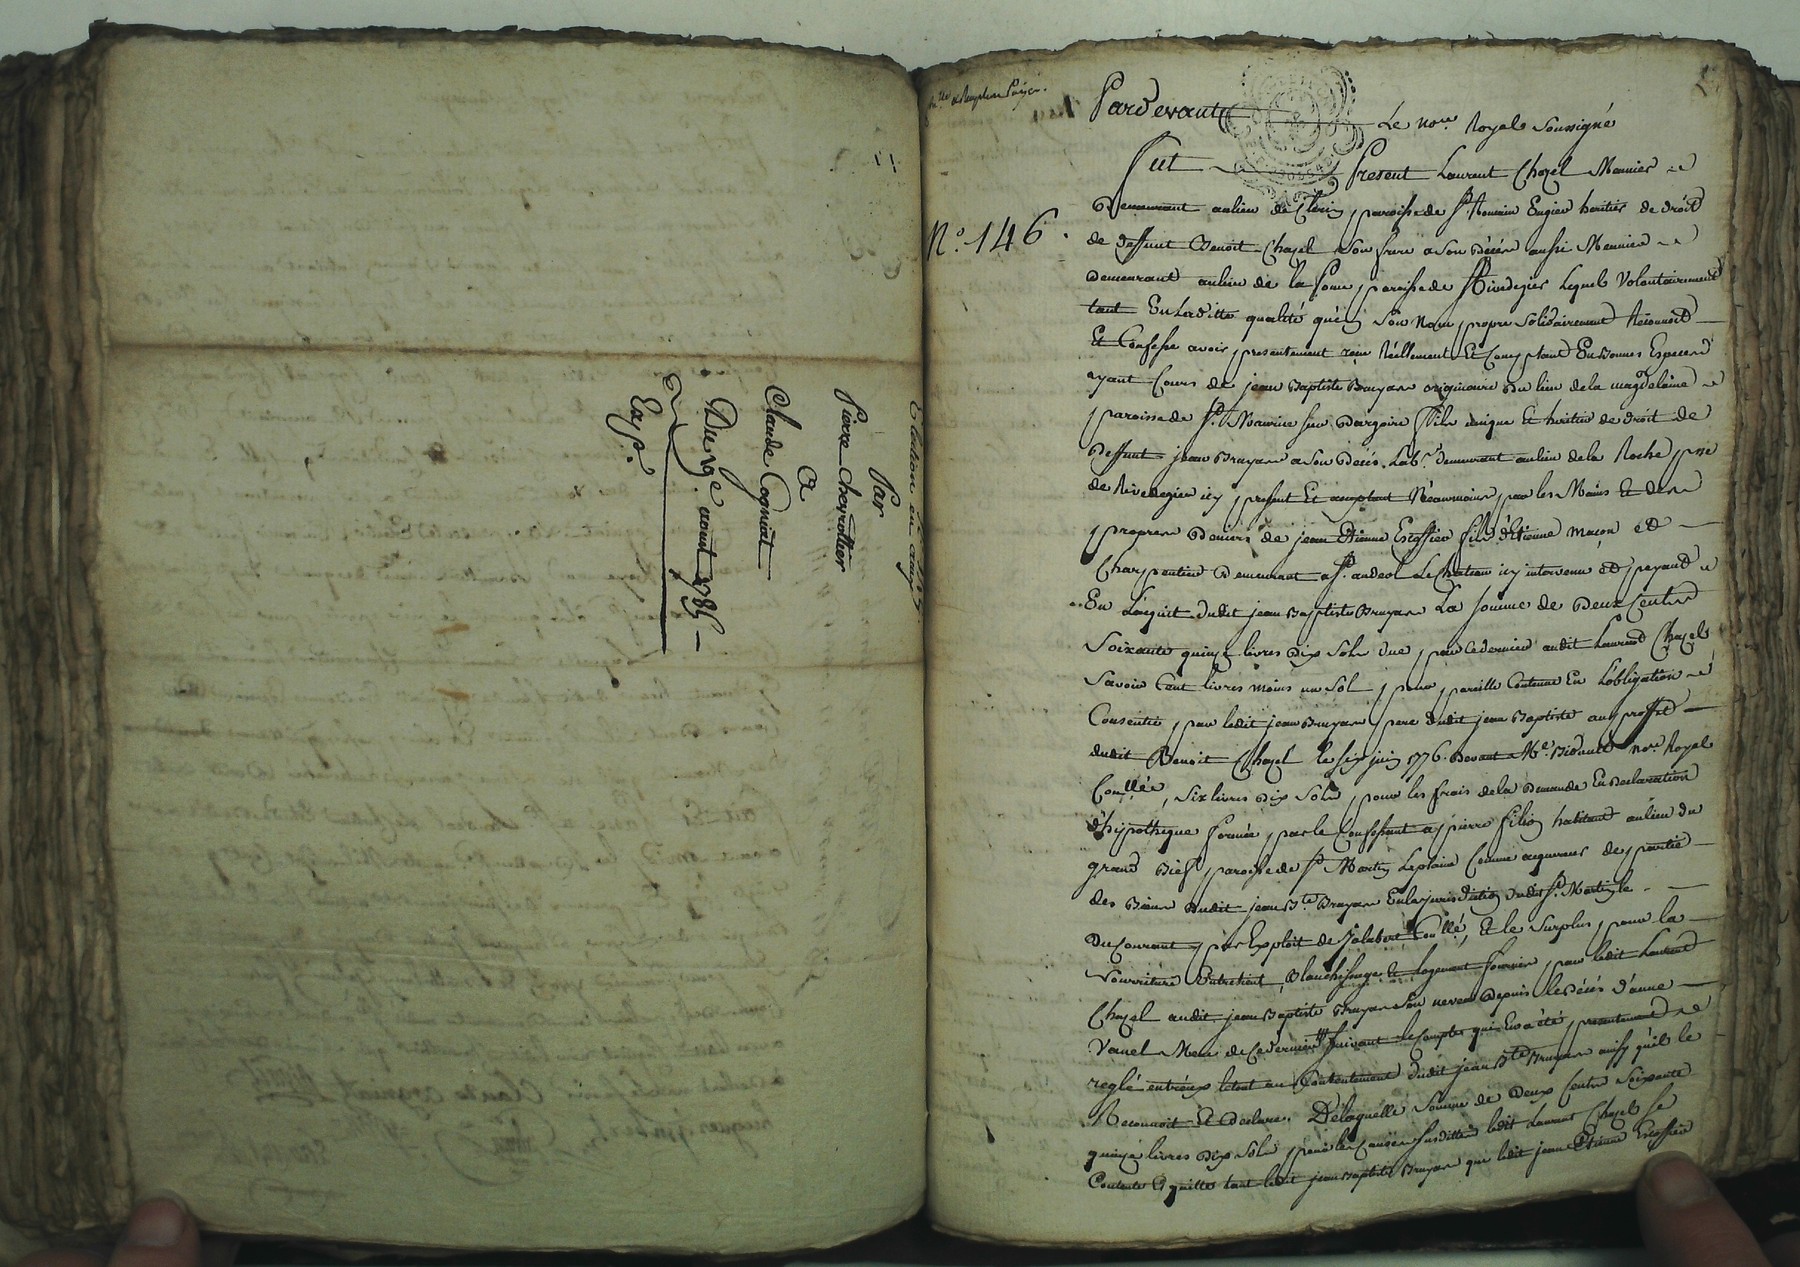 Par
Pierre Cheyrottier
A
Claude Cogniat
Du 7e aoust 1785
Exp.
N.° 146.
Pardevant Le no.re Royal Soussigné
Fut Present Laurent Chazel Meunier
Demeurant au lieu de paroisse de St. Romain Engier heritier de droit
de deffunt Benoit Chazel son frere a son décés aussi Meunier
Demeurant au lieu de la paroisse de Rivedegier Lequel Volontairement
tant En Laditte qualité qu'en son Nom propre solidairement Reconnoit
Et Confesse avoir presentement reçu Réellement Et Comptant En Bonnes Especes
ayant Cours de jean Baptiste Bruyas originaire du lieu de la magdelaine
paroisse de St. Maurice sur Dargoire Fils unique Et heritier de droit de
Deffunt jean Bruyas a son Décés Lab.r demeurant au lieu de la Roche psse
de Rivedegier icy present Et acceptant Néanmoins par les Mains Et des
propres Deniers de jean Etienne Escoffier fils d'Etienne macon et
Charpentier Demeurant a St. andeol Le Chateau icy intervenu et payant
En L'acquit dudit jean Baptiste Bruyas La somme de Deux Cents
Soixante quinze livres Dix Sols due par Ce dernier audit Laurent Chazel
Savoir Cent livres moins un Sol pour pareille Contenue En L'obligation
Consentie par ledit jean Bruyas pere dudit jean Baptiste au proffit
dudit Benoit Chazel le six juin 1776. Devant Me. no.re Royal
, Six livres Dix Sols pour les frais de la Demande En Declaration
d'hypotheque formée par le Confessant a pierre filion habitant au lieu du
grand Bief paroisse de St. Martin Laplaine Comme acquereur de partie
des Biens dudit jean B.te Bruyas En la jurisdiction dudit St. Martin le
Du Courant par Exploit de Jalabert , Et le Surplus pour la
Nourriture Entretient, Blanchissage Et Logement fournis par ledit Laurent
Chazel audit jean Baptiste Bruyas son neveu Depuis le Décés d'anne
Vanel Mere de Ce dernier suivant le Compte qui En a été presentement
reglé entr'eux le tout au Contentement dudit jean B.te Bruyas ainsy qu'il le
Reconnoit Et Declare. De laquelle Somme de Deux Cents Soixante
quinze livres Dix Sols pour les Causes susdittes ledit Laurent Chazel Se
Contente Et quitte tant ledit jean Baptiste Bruyas que ledit jean Etienne Escoffier